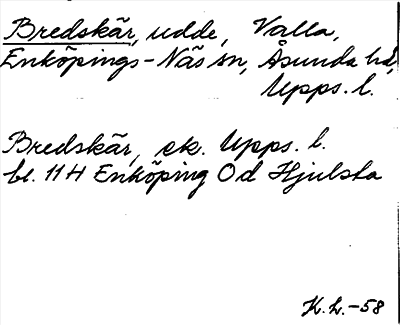 Bredskär, udde, Valla,
Enköpings-Näs sn, Åsunda hd,
Upps. l.
Bredskär, ek. Upps. l.
bl. 11 H Enköping Od Hjulsta
K.L.-58